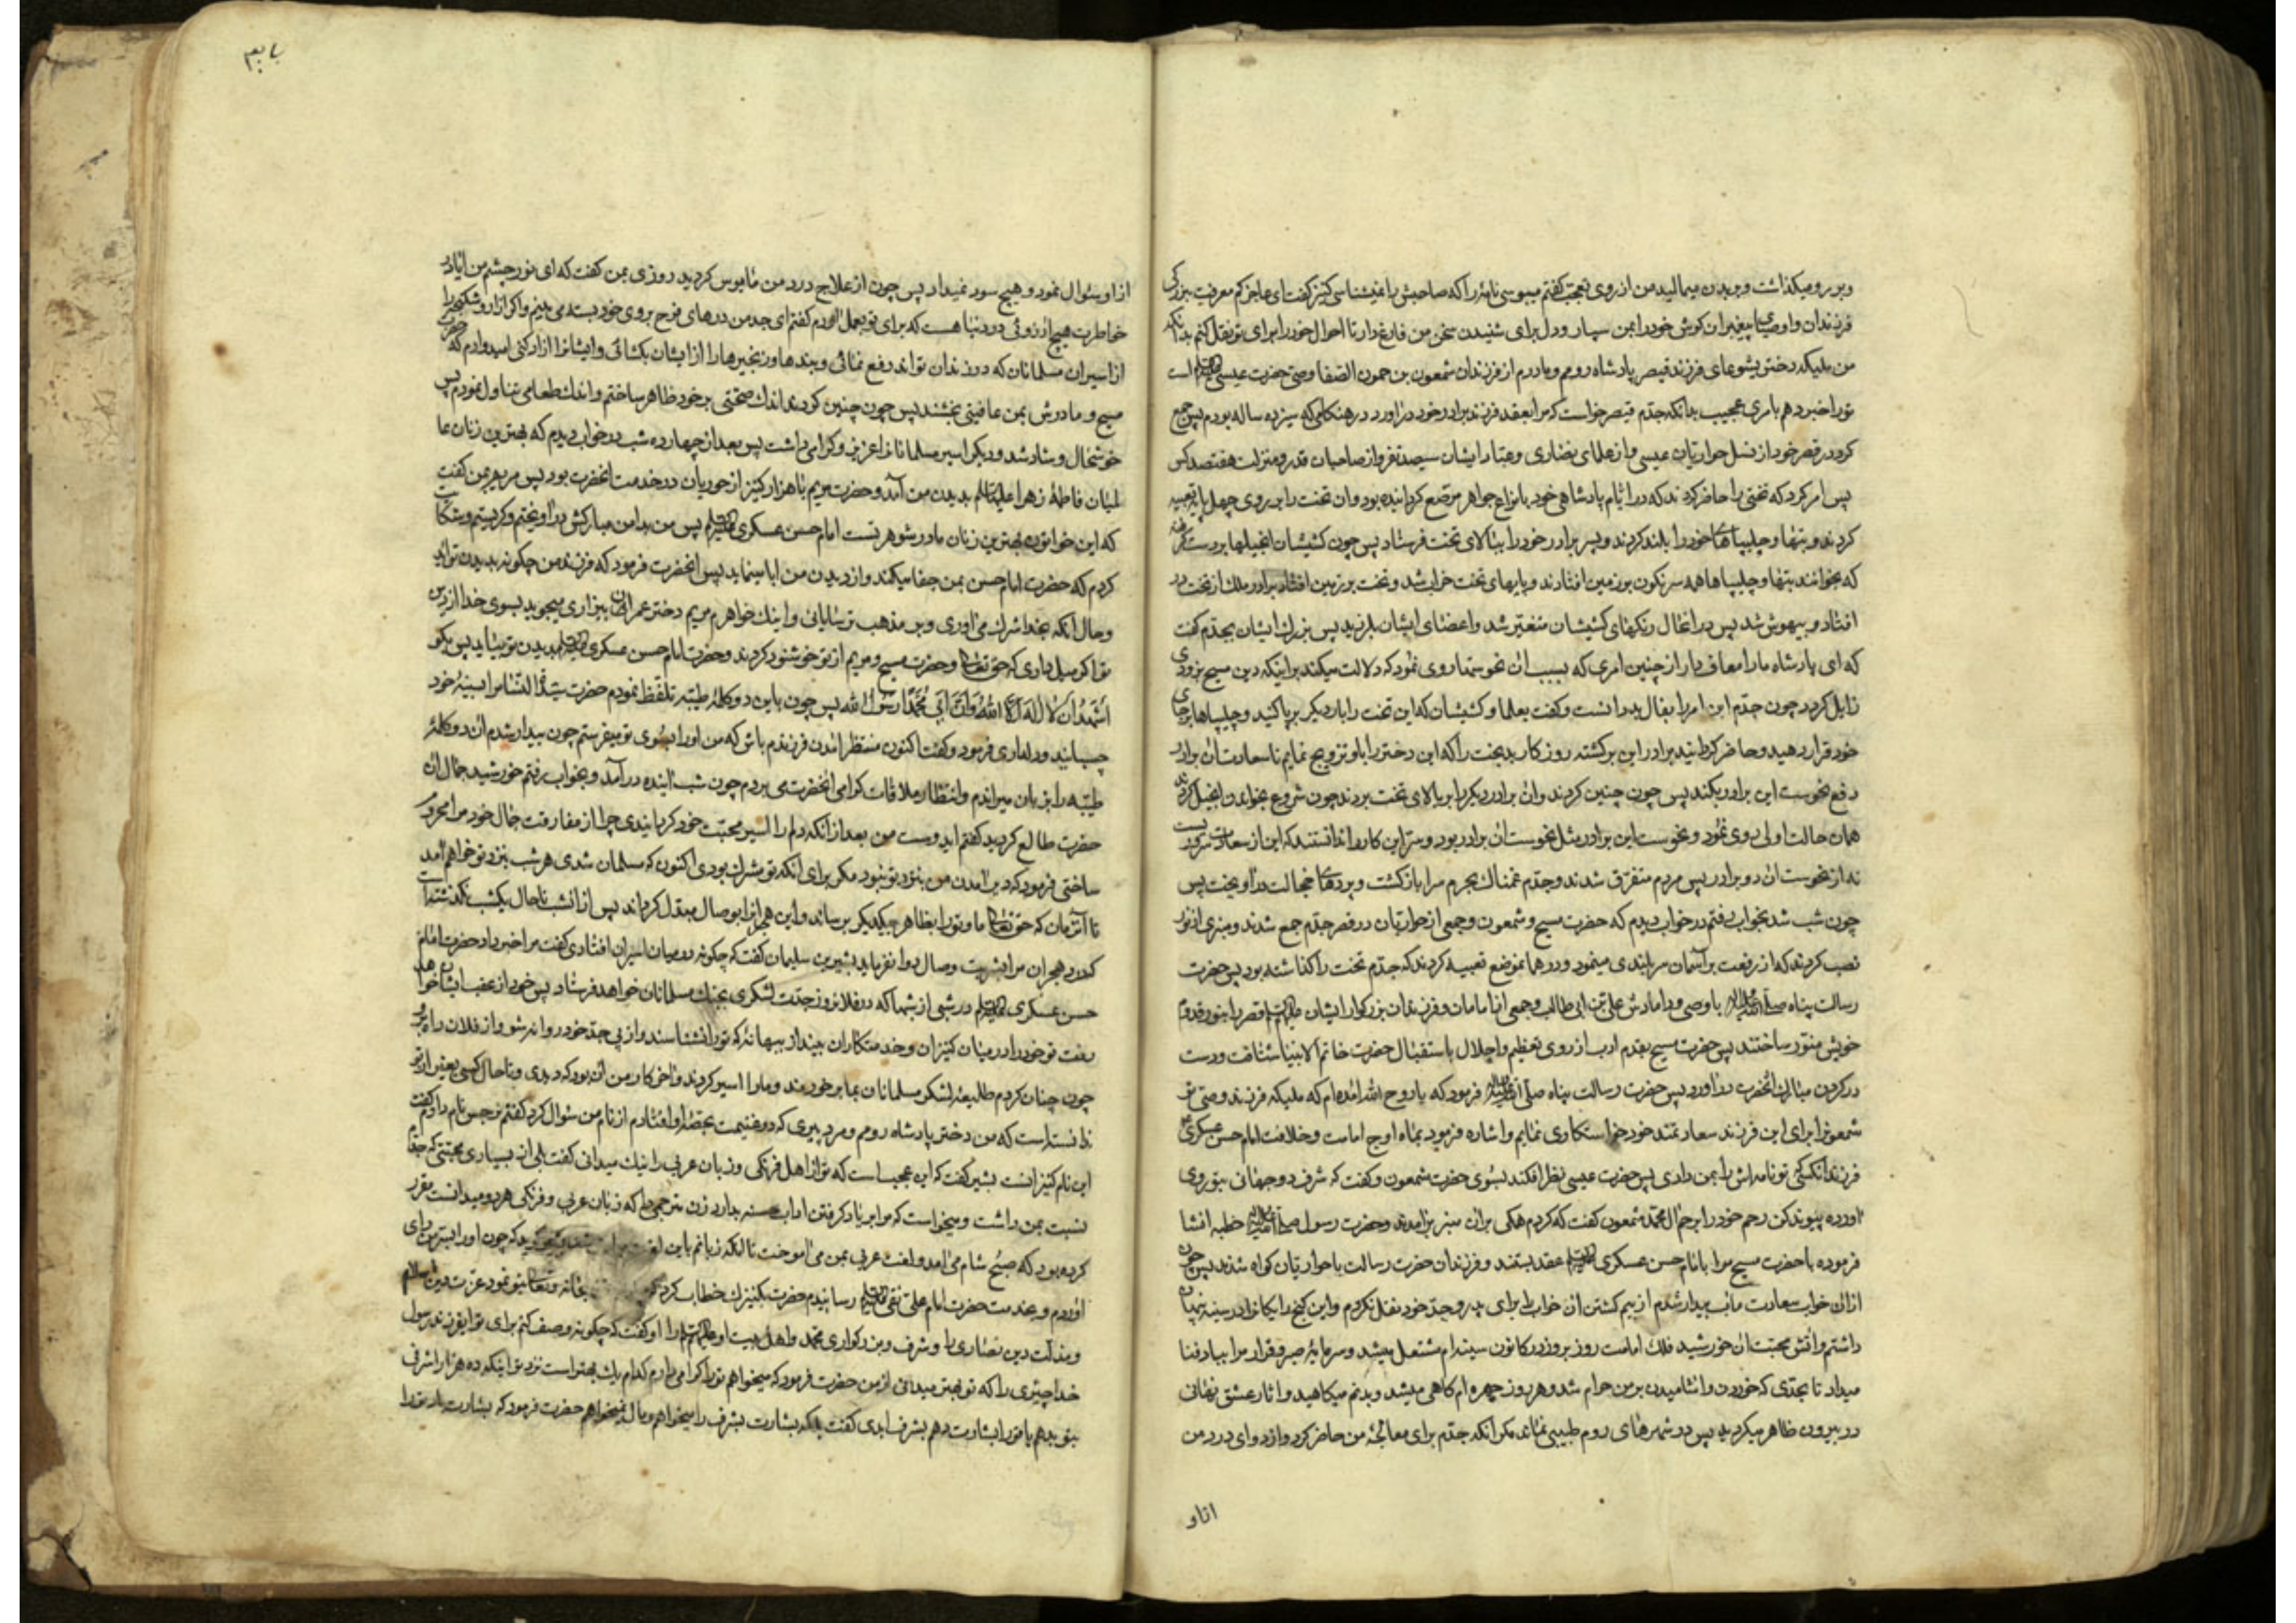 وبر رو میکذاشت و بر بدن میمالید من از روی تعجب کفتم میبوسی نامهٔ را که صاحبش را نمیشناسی کنیز کفت ای عاجز کم معرفت ببزرکی
فرزندان و اوصیای پیغمبران کوش خود را بمن بسپار و دل برای شنیدن سخن من فارغ دار تا احوال خود را برای تو نقل کنم بدانکه
من ملیکه دختر یشوعای فرزند قیصر پادشاه رومم و مادرم از فرزندان شمعون بن حمون الصفا وصی حضرت عیسی علیه السلام است
تو را خبر دهم بامری عجیب بدانکه جدم قیصر خواست که مرا بعقد فرزند برادر خود دراورد در هنکامی که سیزده ساله بودم پس جمع
کرد در قصر خود از نسل حواریان عیسی و از علمای نصاری و عباد ایشان سیصد نفر و از صاحبان قدر و منزلت هفتصد کس
پس امر کرد که تختی را حاضر کردند که در ایام پادشاهی خود بانواع جواهر مرصع کردانیده بود وان تخت را بر روی چهل پایه تعبیه
کردند و بتها و چلیپاهای خود را بلند کردند و پسر برادر خود را ببالای تخت فرستاد پس چون کشیشان انجیلها بر دست کرفتند
که بخوانند بتها و چلیپاها همه سرنکون بر زمین افتادند و پایهای تخت خراب شد و تخت بر زمین افتاد برادر ملک از تخت در
افتاد و بیهوش شد پس در انحال رنکهای کشیشان متغیر شد و اعضای ایشان بلرزید پس بزرک ایشان بجدم کفت
که ای پادشاه ما را معاف دار از چنین امری که بسبب ان نحوستها روی نمود که دلالت میکند بر اینکه دین مسیح بزودی
زایل کردد چون جدم این امر را بفال بد دانست و کفت بعلما و کشیشان که این تخت را بار دیکر برپا کنید و چلیپاها بر جای
خود قرار دهید و حاضر کردانید برادر این برکشته روزکار بدبخت را که این دختر را باو تزویج نمایم تا سعادت ان برادر
دفع نحوست این برادر بکند پس چون چنین کردند وان برادر دیکر را بر بالای تخت بردند چون شروع بخواندن انجیل کردند
همان حالت اولی روی نمود و نحوست این برادر مثل نحوست ان برادر بود و سر این کار را ندانستند که این از سعادت سروریست
نه از نحوست ان دو برادر پس مردم متفرق شدند و جدم غمناک بحرم سرا بازکشت و پردهای خجالت دراویخت پس
چون شب شد بخواب رفتم در خواب دیدم که حضرت مسیح و شمعون و جمعی از حواریان در قصر جدم جمع شدند و منبری از نور
نصب کردند که از رفعت بر آسمان سربلندی مینمود و در همان موضع تعبیه کردند که جدم تخت را کذاشته بود پس حضرت
رسالت پناه صلی الله علیه واله با وصی و دامادش علی بن ابی طالب و جمعی از امامان و فرزندان بزرکوار ایشان علیهم السلام قصر را بنور قدوم
خویش منور ساختند پس حضرت مسیح بقدم ادب از روی تعظیم و اجلال باستقبال حضرت خاتم الانبیا شتافت و دست
در کردن مبارک انحضرت دراورد پس حضرت رسالت پناه صلی الله علیه واله فرمود که یا روح الله امده ام که ملیکه فرزند وصی تو
شمعون را برای این فرزند سعادتمند خود خواستکاری نمایم و اشاره فرمود بماه اوج امامت و خلافت امام حسن عسکری
فرزند انکسی که تو نامه اش را بمن دادی پس حضرت عیسی نظر افکند بسوی حضرت شمعون و کفت که شرف دو جهانی بتو روی
اورده پیوند کن رحم خود را برحم ال محمد شمعون کفت که کردم همکی بران منبر برامدند و حضرت رسول صلی الله علیه واله خطبه انشا
فرموده با حضرت مسیح مرا بامام حسن عسکری علیه السلام عقد بستند و فرزندان حضرت رسالت با حواریان کواه شدند پس چون
ازان خواب سعادت ماب بیدار شدم از بیم کشتن ان خواب را برای پدر و جد خود نقل نکردم و این کنج رایکان را در سینه پنهان
داشتم و اتش محبت ان خورشید فلک امامت روز بروز در کانون سینه ام مشتعل میشد و سرمایهٔ صبر و قرار مرا بباد فنا
میداد تا بحدی که خوردن و اشامیدن بر من حرام شد و هر روز چهره ام کاهی میشد و بدنم میکاهید و اثار عشق نهانی
در بیرون ظاهر میکردید پس در شهرهای روم طبیبی نماند مکر انکه جدم برای معالجهٔ من حاضر کرد و از دوای درد من
ازاو
از او سئوال نمود و هیچ سود نمیداد پس چون از علاج درد من مایوس کردید روزی بمن کفت که ای نور چشم من ایا در
خاطرت هیچ ارزوئی در دنیا هست که برای تو بعمل اورم کفتم ای جد من درهای فرح بروی خود بسته می بینم و اکر ازار و شکنجه را
از اسیران مسلمانان که در زندان تواند رفع نمائی و بندها و زنجیرها را از ایشان بکشائی و ایشانرا ازاد کنی امیدوارم که حضرت
مسیح و مادرش بمن عافیتی بخشند پس چون چنین کردند اندک صحتی بر خود ظاهر ساختم و اندک طعامی تناول نمودم پس
خوشحال و شاد شد و دیکر اسیر مسلمانانرا عزیز و کرامی داشت پس بعد از چهارده شب در خواب دیدم که بهترین زنان عا
لمیان فاطمهٔ زهرا علیها السلم بدیدن من آمد و حضرت مریم با هزار کنیز از حوریان در خدمت انحضرت بود پس مریم بمن کفت
که این خواتون بهترین زنان مادر شوهر تست امام حسن عسکری علیه السلام پس من بدامن مبارکش دراویختم و کریستم و شکایت
کردم که حضرت امام حسن بمن جفا میکند و از دیدن من ابا مینماید پس انحضرت فرمود که فرزند من چکونه بدیدن تو اید
و حال انکه بخدا شرک می اوری و بر مذهب ترسایانی و اینک خواهرم مریم دختر عمران بیزاری میجوید بسوی خدا از دین
تو اکر میل داری که حق تعالی و حضرت مسیح و مریم از تو خوشنود کردند و حضرت امام حسن عسکری علیه السلام بدیدن تو بیاید پس بکو
اَشهَدُ اَن لا اِلهَ اِلّا اللهُ وَاَنَّ اَبی مُحَمَّداً رَسُولُ الله پس چون باین دو کلمهٔ طیبه تلفظ نمودم حضرت سیدة النسا مرا بسینهٔ خود
چسبانید و دلداری فرمود و کفت اکنون منتظر امدن فرزندم باش که من او را بسوی تو میفرستم چون بیدار شدم ان دو کلمهٔ
طیبه را بر زبان میراندم و انتظار ملاقات کرامی انحضرت می بردم چون شب اینده درآمد و بخواب رفتم خورشید جمال ان
حضرت طالع کردید کفتم ایدوست من بعد از انکه دلم را اسیر محبت خود کردانیدی چرا از مفارقت جمال خود مرا مجروح
ساختی فرمود که دیر امدن من بنزد تو نبود مکر برای انکه تو مشرک بودی اکنون که مسلمان شدی هر شب بنزد تو خواهم امد
تا آنزمان که حق تعالی ما و تو را بظاهر بیکدیکر برساند و این هجرانرا بوصال مبدل کرداند پس از انشب تا حال یکشب نکذشته است
که درد هجران مرا بشربت وصال دوا نفرماید بشیر بن سلیمان کفت که چکونه در میان اسیران افتادی کفت مرا خبر داد حضرت امام
حسن عسکری علیه السلام در شبی از شبها که در فلان روز جدت لشکری بجنک مسلمانان خواهد فرستاد پس خود از عقب ایشان خواهد
رفت تو خود را در میان کنیزان و خدمتکاران بینداز ببهانهٔ که تو را نشناسند و از پی جد خود روانه شو و از فلان راه برو
چون چنان کردم طلیعهٔ لشکر مسلمانان بما برخوردند و ما را اسیر کردند و اخر کار من ان بود که دیدی و تا حال کسی بغیر از تو
ندانسته است که من دختر پادشاه رومم و مرد پیری که در غنیمت بحصهٔ او افتادم از نام من سئوال کرد کفتم نرجس نام دارم کفت
این نام کنیزانست بشیر کفت که این عجیب است که تو از اهل فرنکی و زبان عربی را نیک میدانی کفت بلی از بسیاری محبتی که جدم
نسبت بمن داشت و میخواست که مرا بر یاد کرفتن اداب حسنه بدارد زن مترجمی را که زبان عربی و فرنکی هر دو میدانست مقرر
کرده بود که صبح شام می امد و لغت عربی بمن می اموخت تا انکه زبانم باین لغت کوید که چون او را بسرمن رای
اوردم و بخدمت حضرت امام علی نقی علیه السلام رسانیدم حضرت بکنیزک خطاب کرد بتو نمود عزت دین اسلام
و مذلت دین نصاری را و شرف و بزرکواری محمد و اهل بیت او علیهم السلام را او کفت که چکونه وصف کنم برای تو ایفرزند رسول
خدا چیزی را که تو بهتر میدانی از من حضرت فرمود که میخواهم تو را کرامی دارم کدام یک بهتر است نزد تو اینکه ده هزار اشرفی
بتو بدهم یا تو را بشارت دهم بشرف ابدی کفت بلکه بشارت بشرف را میخواهم و مال نمیخواهم حضرت فرمود که بشارت باد تو را